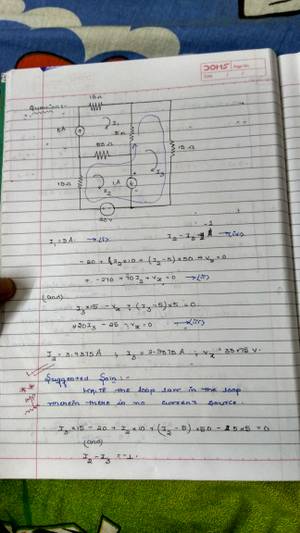 DOMS Page No.
Date / /
Question:-
15Ω
I₁
5A
5Ω
50Ω
15Ω
10Ω
I₂
1A
I₃
20V
I₁ = 5A → (i)
I₂ - I₃ = -1 → (iv)
-20 + I₂×10 + (I₂-5)×50 + Vx = 0
+ -270 + 60I₂ + Vx = 0 → (ii)
(and)
I₃×15 - Vx + (I₃-5)×5 = 0
20I₃ - 25 - Vx = 0 → (iii)
Suggested Soln:-
Write the loop law in the loop
wherein there is no current source.
I₃×15 - 20 + I₂×10 + (I₂-5)×50 - 25×5 = 0
(and)
I₂ - I₃ = -1.